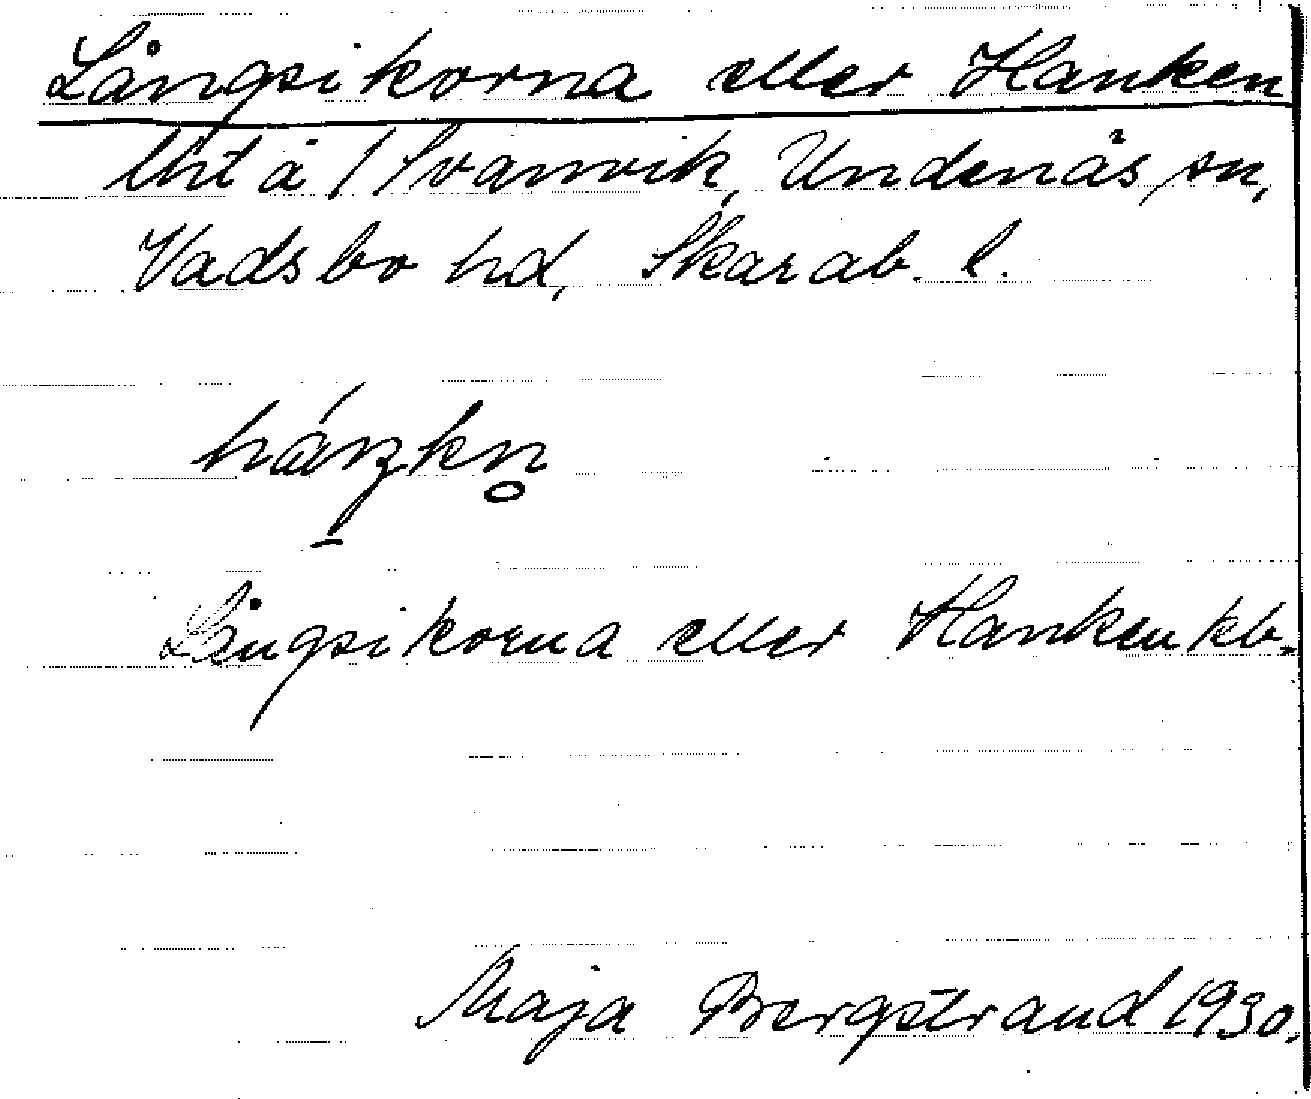 Långsikorna eller Hanken
lht å 1 Svanvik, Undenäs sn,
Vadsbo hd, Skarab. l.
Långsikorna eller Hanken kb.
Maja Bergstrand 1930.